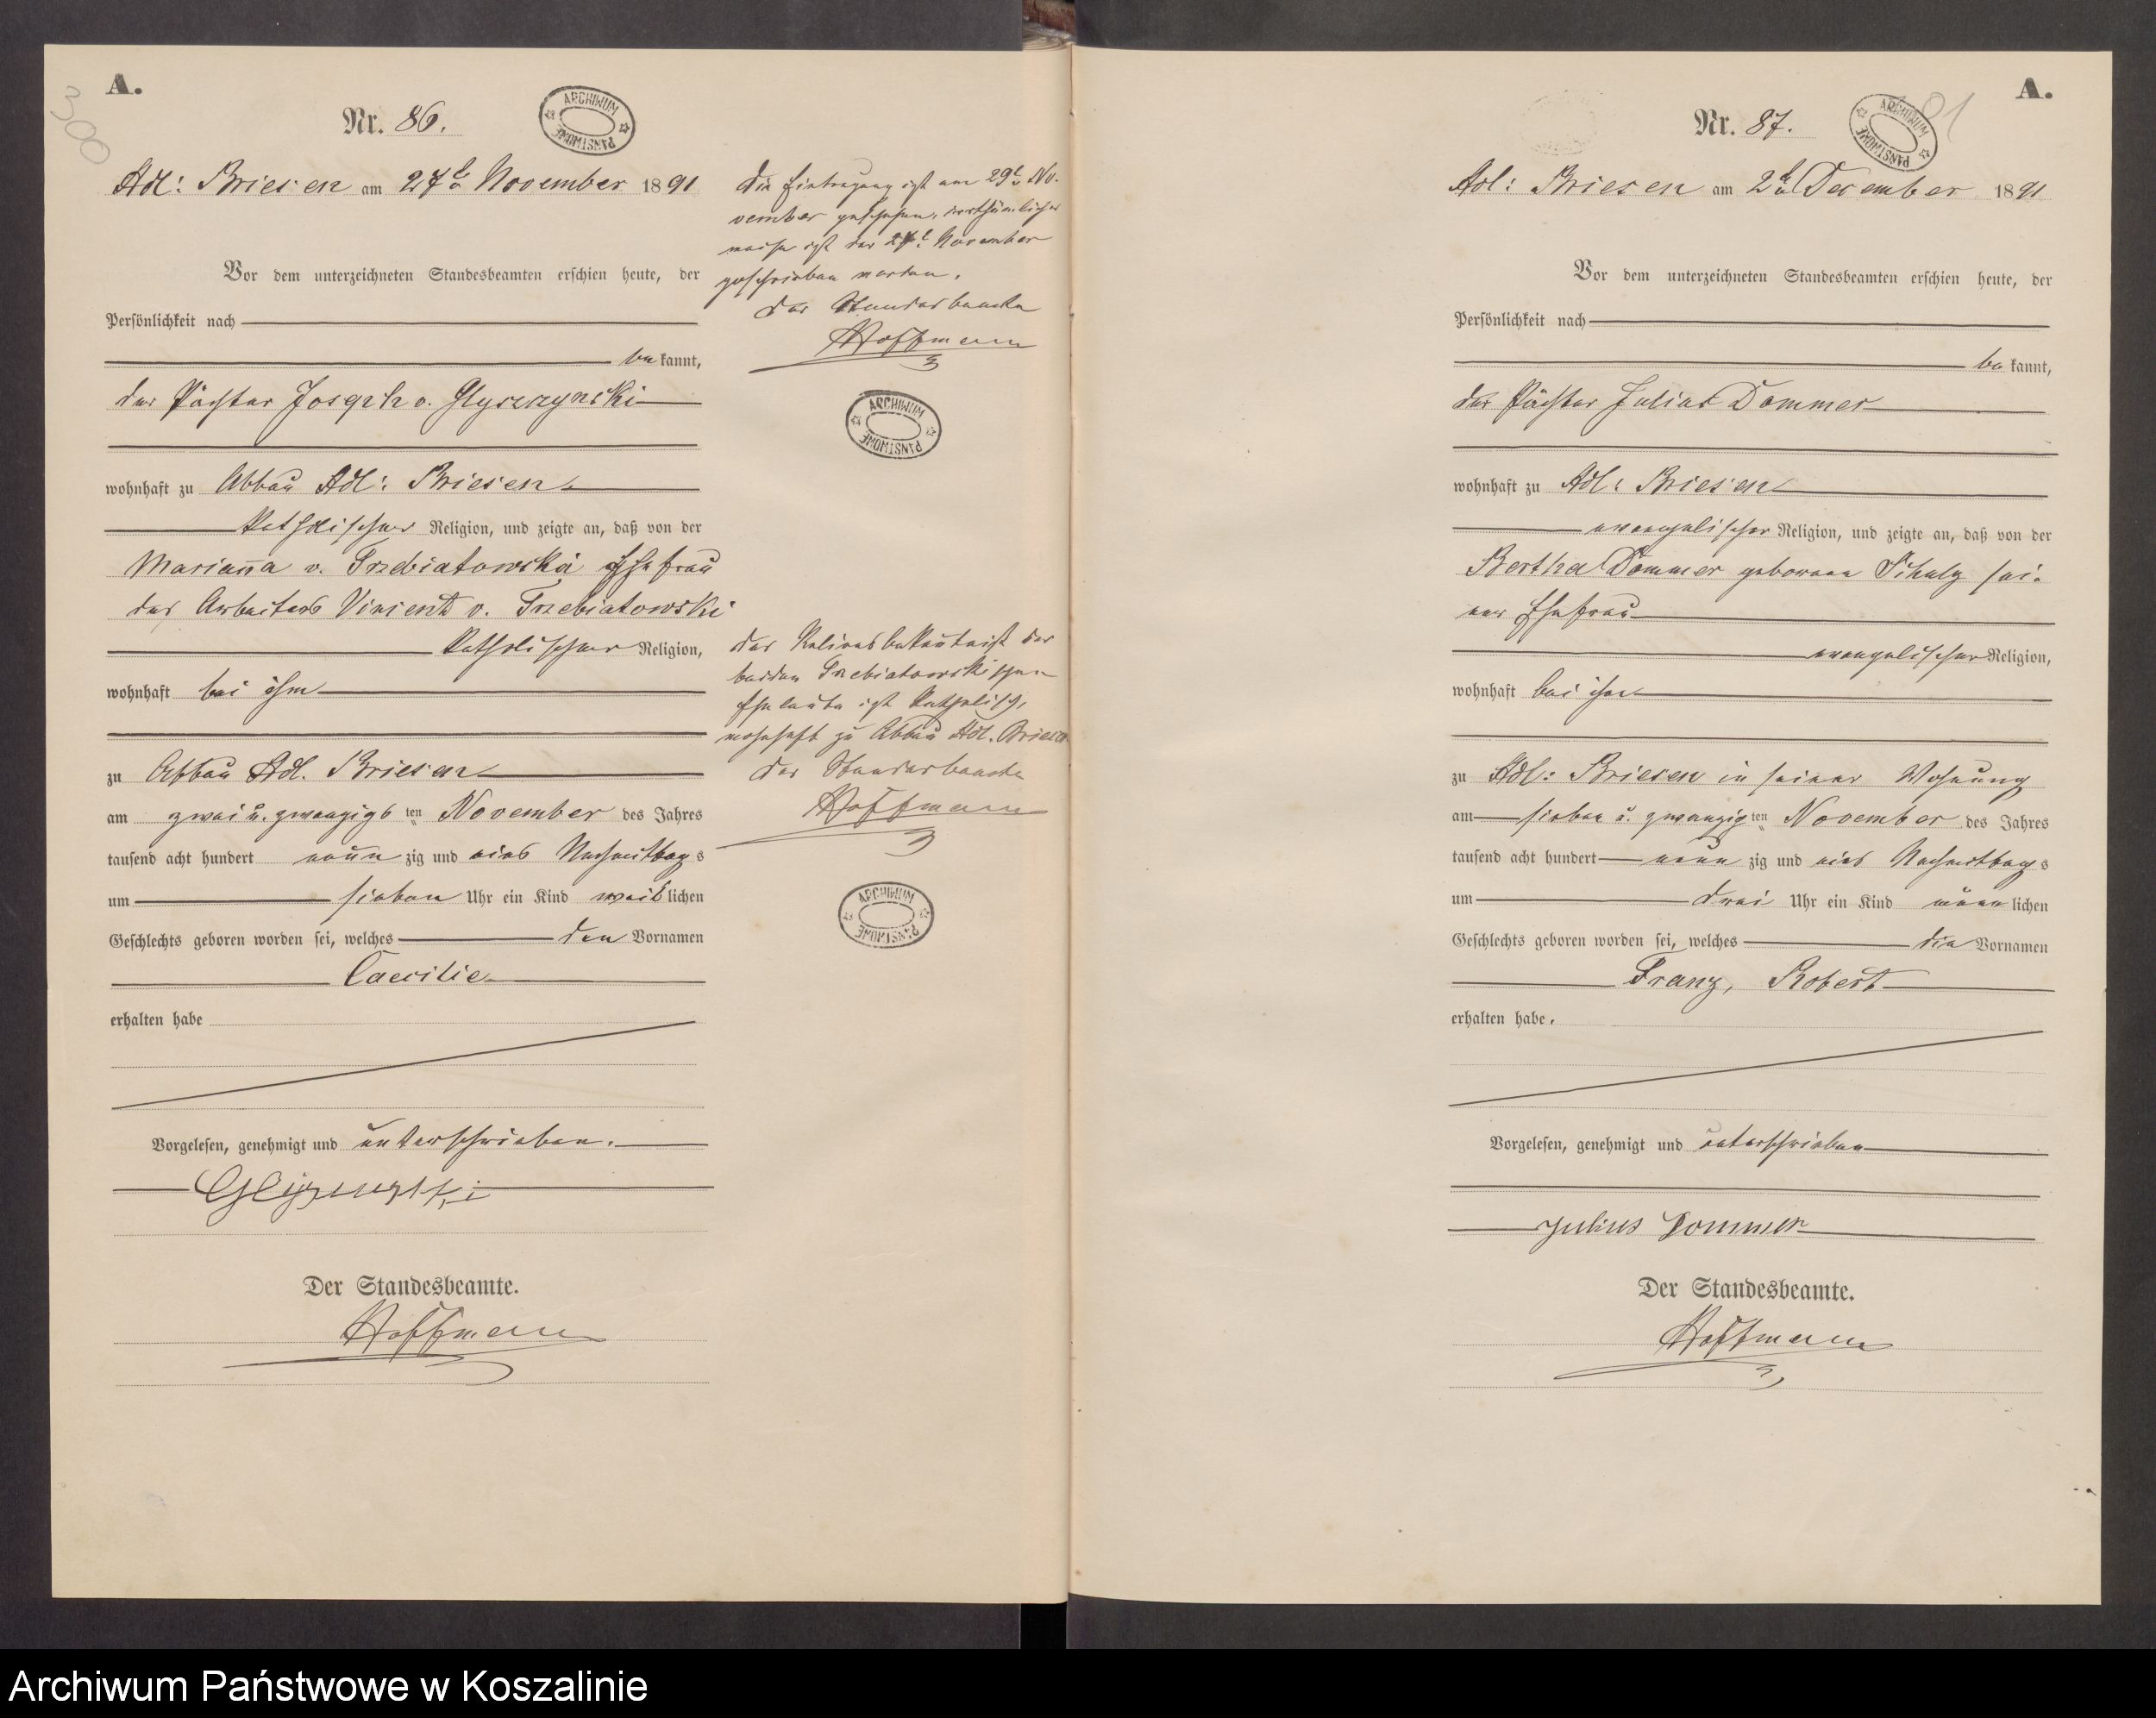 A.
300
Nr. 86.
ARCHIWUM PAŃSTWOWE
Adl: Briesen am 27t November 1891
Vor dem unterzeichneten Standesbeamten erschien heute, der
Persönlichkeit nach
bekannt,
der Pächter Joseph v. Glyszczynski
wohnhaft zu Abbau Adl: Briesen
katholischer Religion, und zeigte an, daß von der
Marianna v. Trzebiatowska Ehefrau
des Arbeiters Vincent v. Trzebiatowski
katholischer Religion,
wohnhaft bei ihm
zu Abbau Adl. Briesen
am zwei u. zwanzigsten November des Jahres
tausend acht hundert neunzig und eins Nachmittags
um sieben Uhr ein Kind weiblichen
Geschlechts geboren worden sei, welches den Vornamen
Caecilie
erhalten habe
Vorgelesen, genehmigt und unterschrieben.
Der Standesbeamte.
Hoffmann
Die Eintragung ist am 29t No-
vember geschehen, irrthümlicher
weise ist der 27t November
geschrieben worden.
Der Standesbeamte
Hoffmann
ARCHIWUM PAŃSTWOWE
beiden Trzebiatowskischen
Eheleute ist katholisch,
wohnhaft zu Abbau Adl. Briesen
Der Standesbeamte
Hoffmann
ARCHIWUM PAŃSTWOWE
A.
Nr. 87.
ARCHIWUM PAŃSTWOWE
Adl: Briesen am 2t December 1891
Vor dem unterzeichneten Standesbeamten erschien heute, der
Persönlichkeit nach
bekannt,
der Pächter Julius Dommer
wohnhaft zu Adl: Briesen
evangelischer Religion, und zeigte an, daß von der
Bertha Dommer geborene Schulz sei-
ner Ehefrau
evangelischer Religion,
wohnhaft bei ihm
zu Adl: Briesen in seiner Wohnung
am sieben u. zwanzigten November des Jahres
tausend acht hundert neunzig und eins Nachmittags
um drei Uhr ein Kind männlichen
Geschlechts geboren worden sei, welches die Vornamen
Franz, Robert
erhalten habe.
Vorgelesen, genehmigt und unterschrieben
Julius Dommer
Der Standesbeamte.
Hoffmann
Archiwum Państwowe w Koszalinie